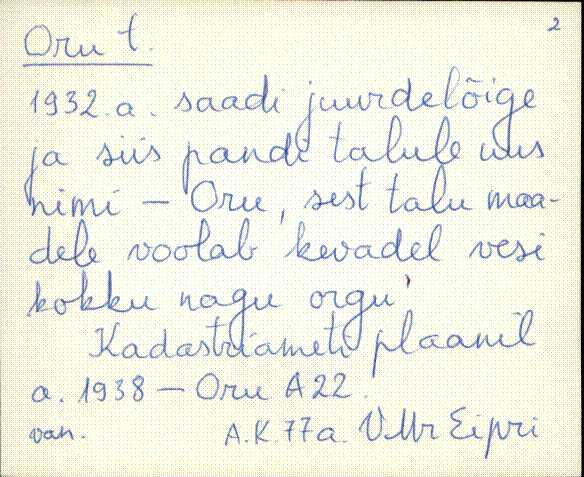 2
Oru t.
1932. a. saadi juurdelõige
ja siis pandi talule uus
nimi – Oru, sest talu maa-
dele voolab kevadel vesi
kokku nagu orgu.
Kadastriameti plaanil
a. 1938 – Oru A 22.
van.
A.K. 77 a. VMr Eipri